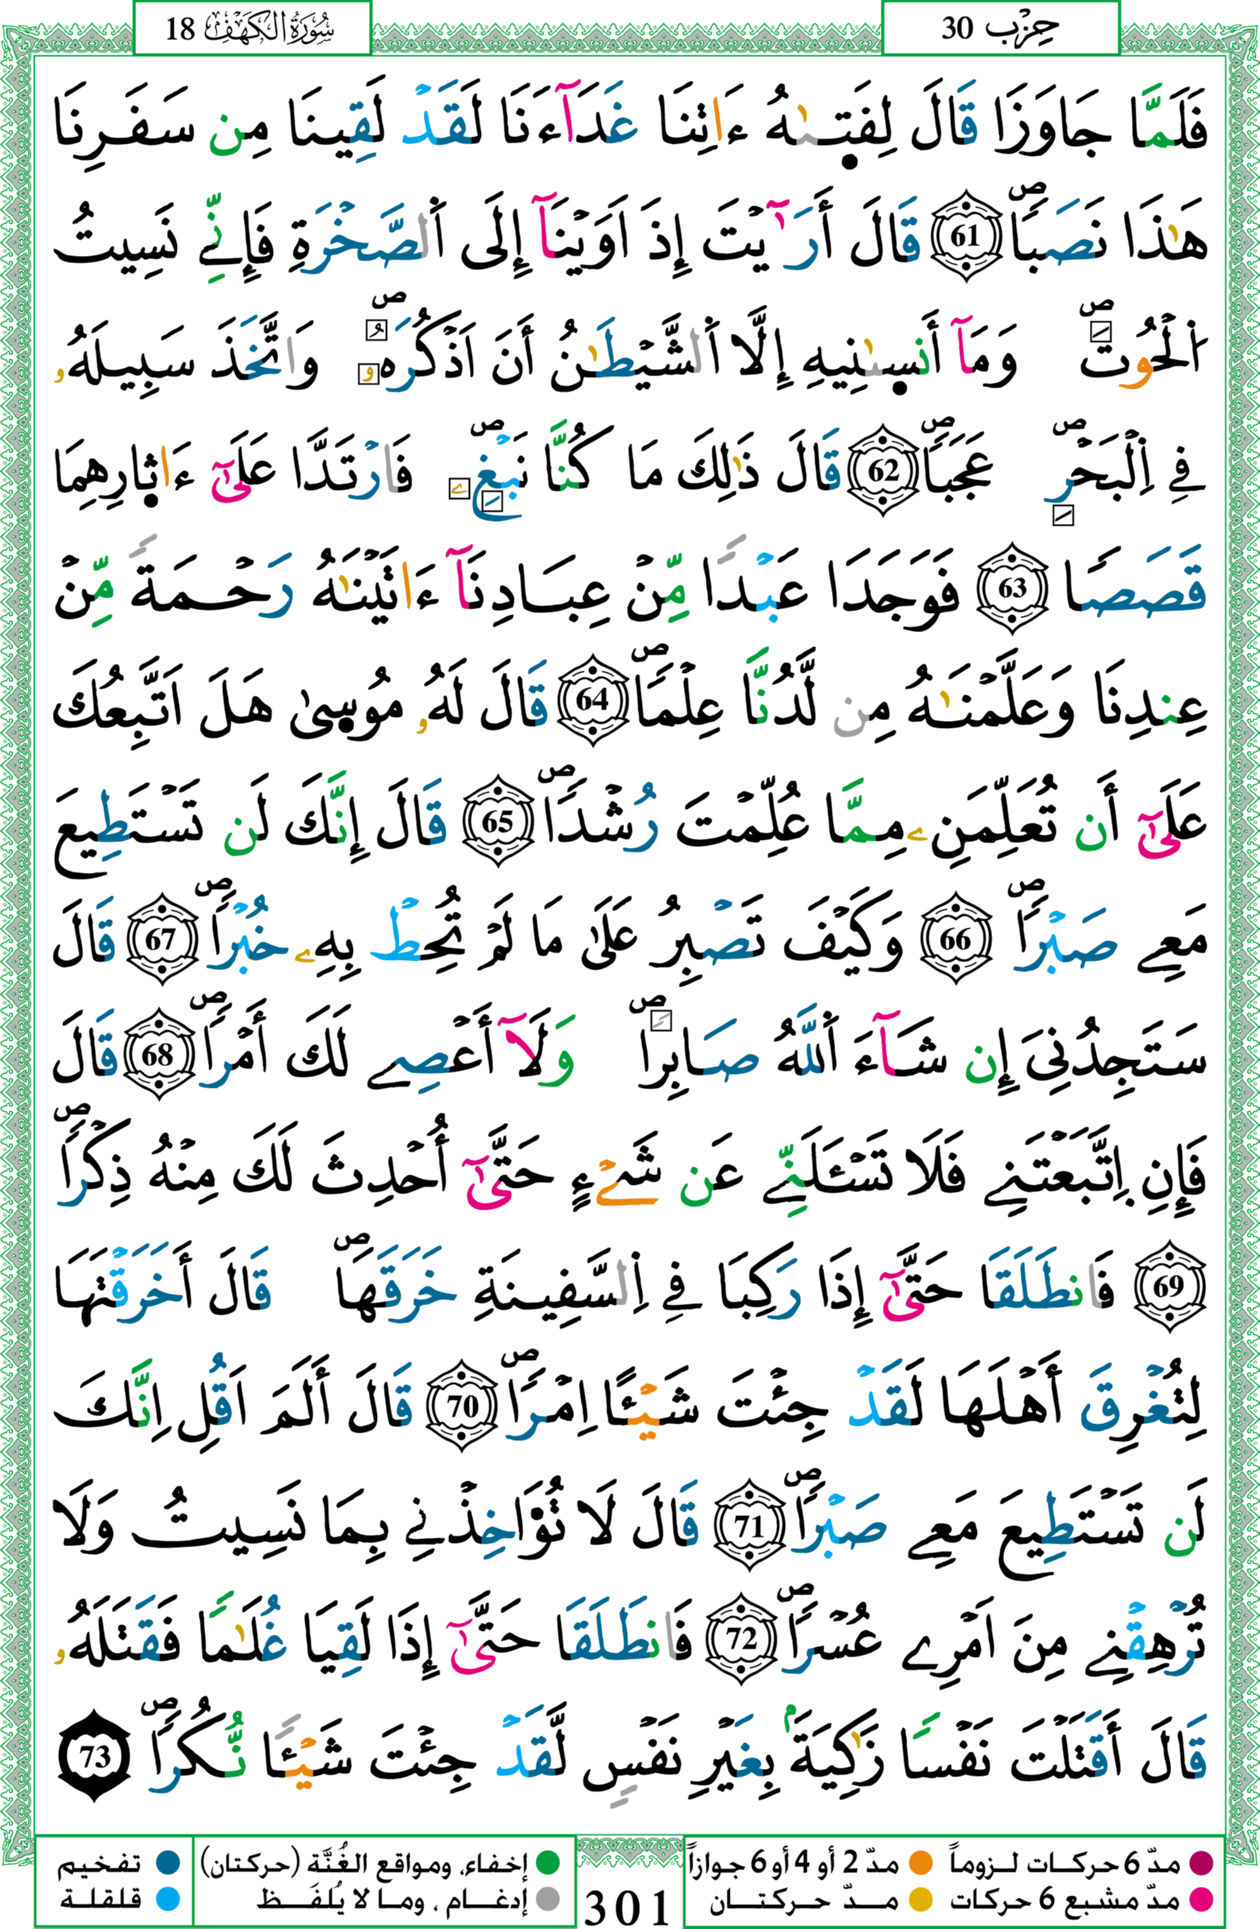 سُورَةُ الكَهْفِ 18
حِزْب 30
فَلَمَّا جَاوَزَا قَالَ لِفَتىٰهُ ءَاتِنَا غَدَآءَنَا لَقَدْ لَقِينَا مِن سَفَرِنَا
هَٰذَا نَصَبًاۖ 61 قَالَ أَرَٰٓيْتَ إِذَ اَوَيْنَآ إِلَى اَ۬لصَّخْرَةِ فَإِنِّے نَسِيتُ
اُ۬لْحُوتَۖ وَمَآ أَنس۪ىٰنِيهِ إِلَّا اَ۬لشَّيْطَٰنُ أَنَ اَذْكُرَهُۥۖ وَاتَّخَذَ سَبِيلَهُۥ
فِے اِ۬لْبَحْرِۖ عَجَبًاۖ 62 قَالَ ذَٰلِكَ مَا كُنَّا نَبْغِۦۖ فَارْتَدَّا عَلَىٰٓ ءَاث۪ارِهِمَا
قَصَصًا 63 فَوَجَدَا عَبْدًا مِّنْ عِبَادِنَآ ءَاتَيْنَٰهُ رَحْمَةً مِّنْ
عِندِنَا وَعَلَّمْنَٰهُ مِن لَّدُنَّا عِلْمًاۖ 64 قَالَ لَهُۥ مُوس۪ىٰ هَلَ اَتَّبِعُكَ
عَلَىٰٓ أَن تُعَلِّمَنِۦ مِمَّا عُلِّمْتَ رُشْدًاۖ 65 قَالَ إِنَّكَ لَن تَسْتَطِيعَ
مَعِے صَبْرًاۖ 66 وَكَيْفَ تَصْبِرُ عَلَىٰ مَا لَمْ تُحِطْ بِهِۦ خُبْرًاۖ 67 قَالَ
سَتَجِدُنِيَ إِن شَآءَ اَ۬للَّهُ صَابِرًاۖ وَلَآ أَعْصِے لَكَ أَمْرًاۖ 68 قَالَ
فَإِنِ اِ۪تَّبَعْتَنِے فَلَا تَسْـَٔلَنِّے عَن شَےْءٍ حَتَّىٰٓ أُحْدِثَ لَكَ مِنْهُ ذِكْرًاۖ
69 فَانطَلَقَا حَتَّىٰٓ إِذَا رَكِبَا فِے اِ۬لسَّفِينَةِ خَرَقَهَاۖ قَالَ أَخَرَقْتَهَا
لِتُغْرِقَ أَهْلَهَا لَقَدْ جِئْتَ شَيْـًٔا اِمْرًاۖ 70 قَالَ أَلَمَ اَقُلِ اِنَّكَ
لَن تَسْتَطِيعَ مَعِے صَبْرًاۖ 71 قَالَ لَا تُؤَاخِذْنِے بِمَا نَسِيتُ وَلَا
تُرْهِقْنِے مِنَ اَمْرِے عُسْرًاۖ 72 فَانطَلَقَا حَتَّىٰٓ إِذَا لَقِيَا غُلَٰمًا فَقَتَلَهُۥ
قَالَ أَقَتَلْتَ نَفْسًا زَٰكِيَةَۢ بِغَيْرِ نَفْسٍ لَّقَدْ جِئْتَ شَيْـًٔا نُّكُرًاۖ 73
مدّ 6 حركات لـزوماً مدّ 2 أو 4 أو 6 جوازاً إخفاء، ومواقع الغُنَّة (حركتان) تفخيم
مدّ مشبع 6 حركات مــدّ حـركتــان إدغــام ، ومـا لا يُلفَــظ قلقلة
301